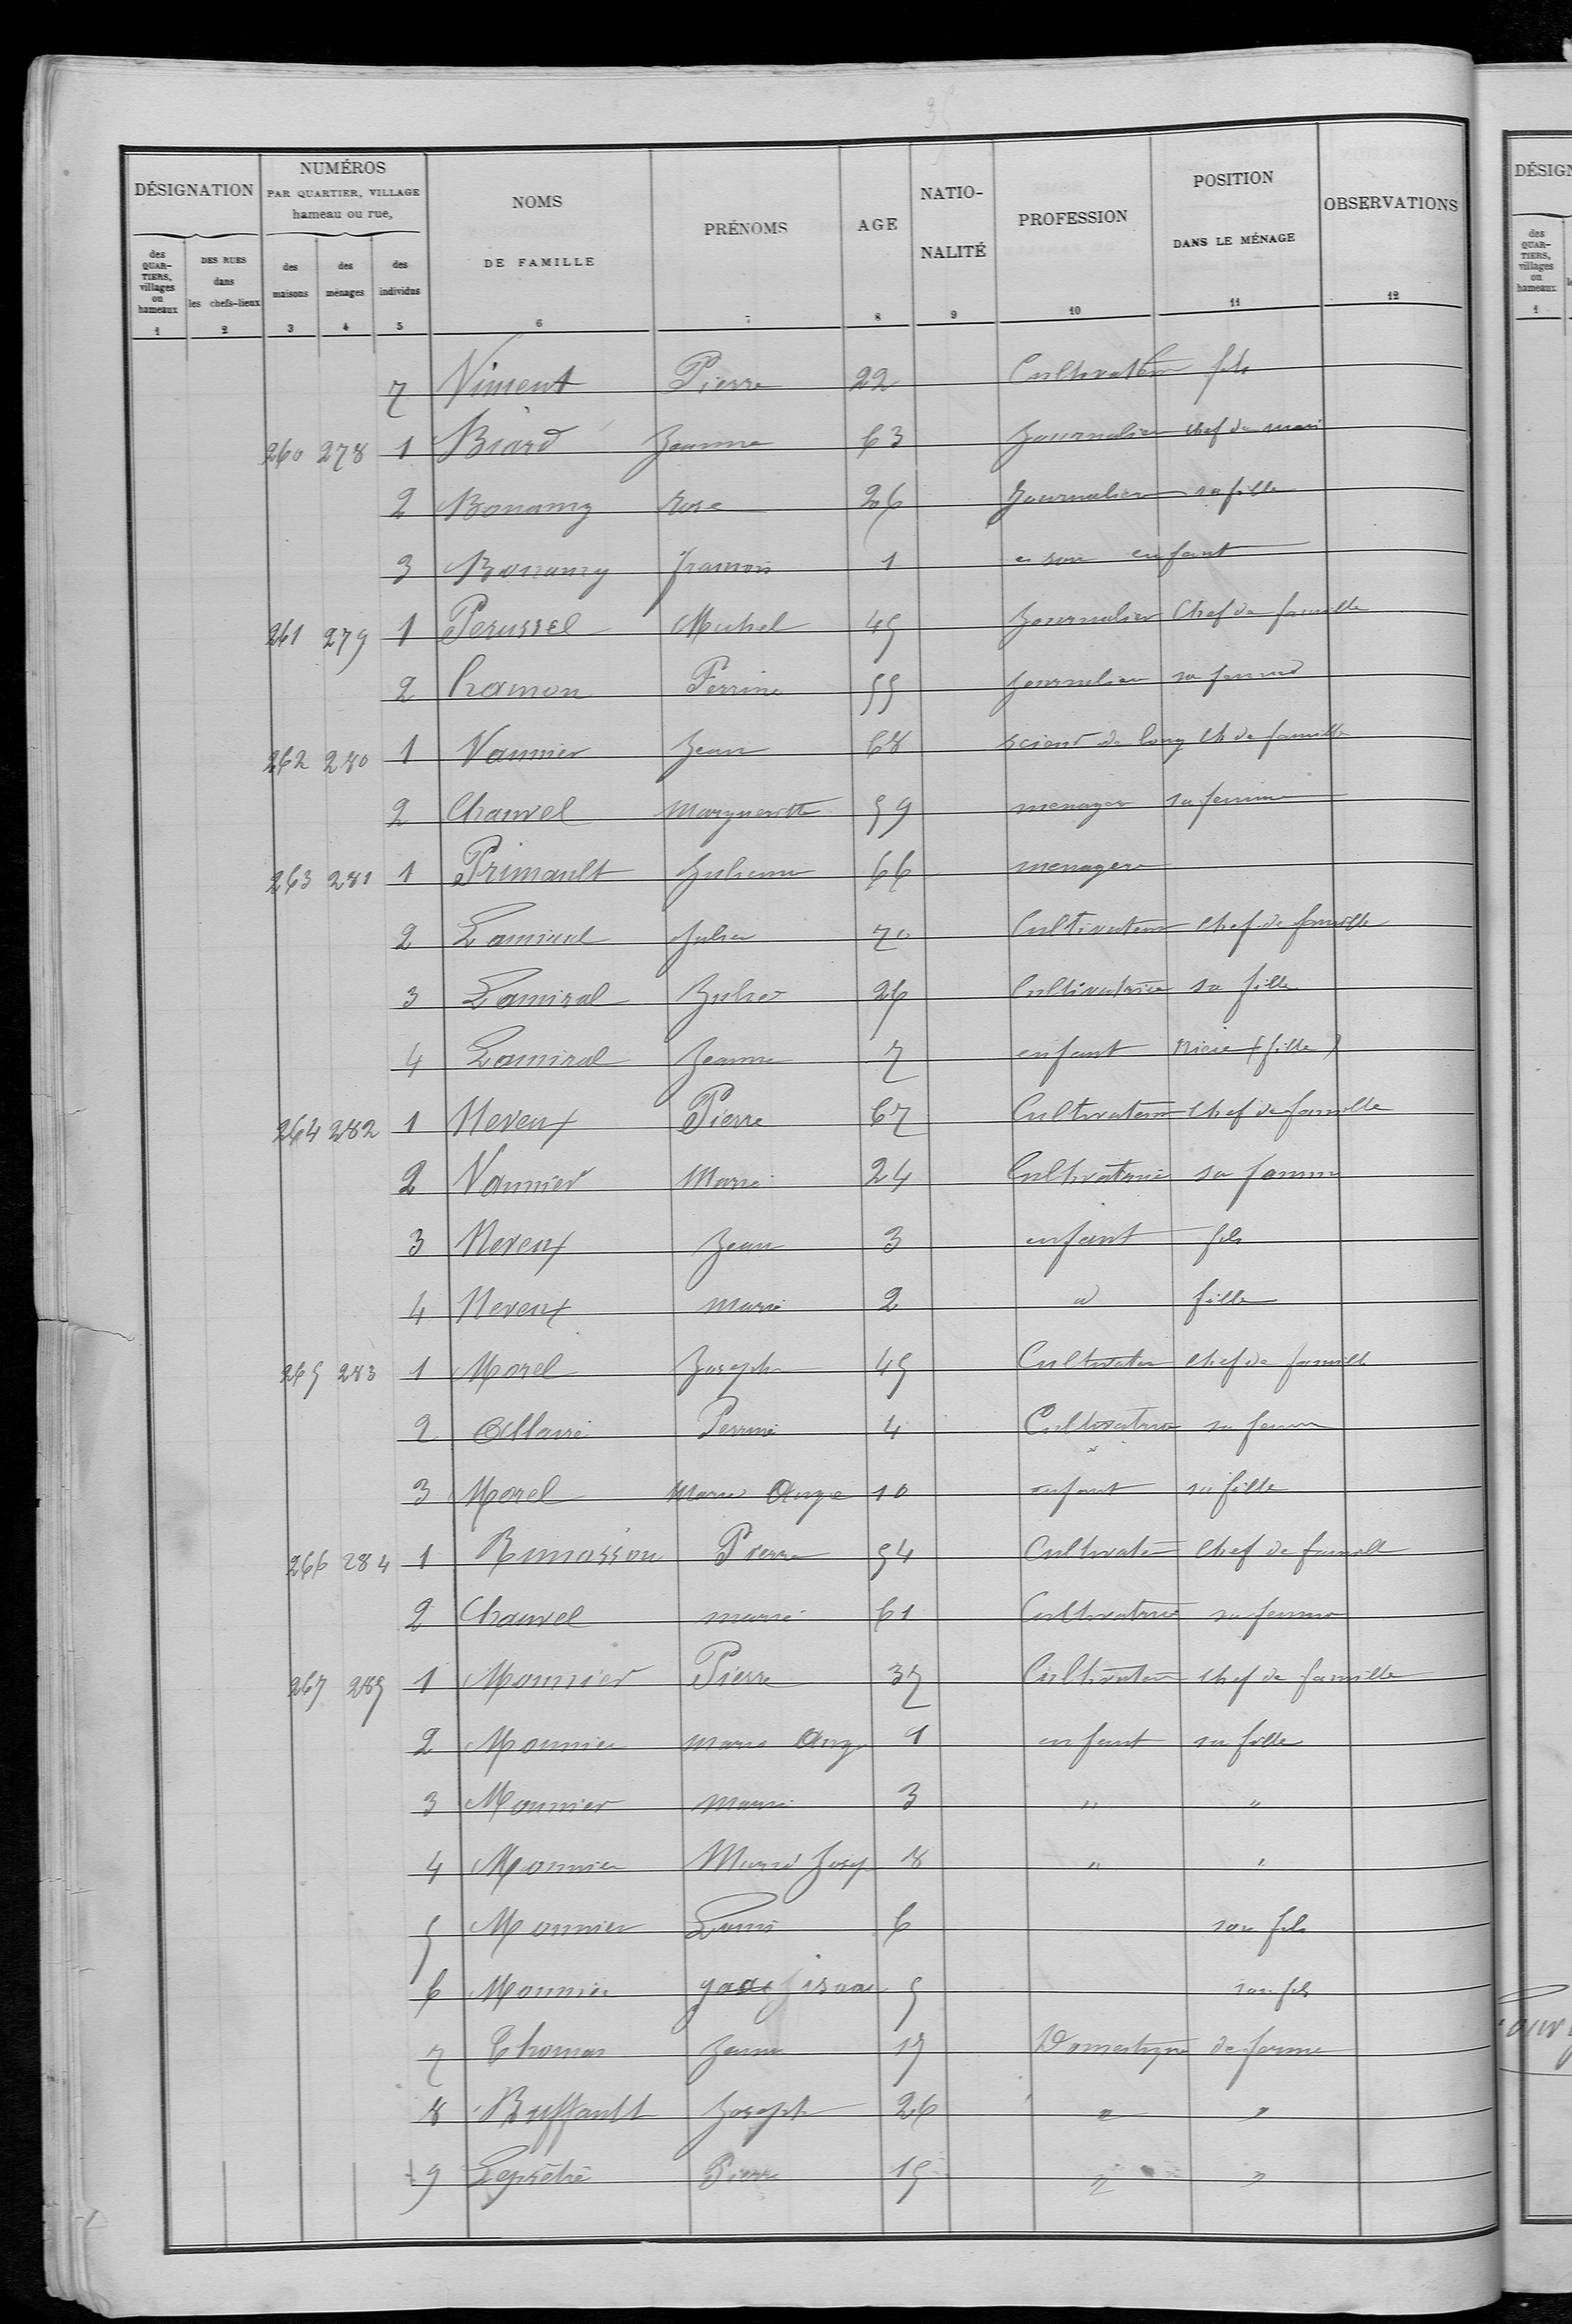 35
DÉSIGNATION NUMÉROS PAR QUARTIER, VILLAGE hameau ou rue, NOMS DE FAMILLE PRÉNOMS AGE NATIO-NALITÉ PROFESSION POSITION DANS LE MÉNAGE OBSERVATIONS
des QUAR-TIERS, villages ou hameaux DES RUES dans les chefs-lieux des maisons des ménages des individus
1 2 3 4 5 6 7 8 9 10 11 12
7 Viment Pierre 22 Cultivateur fils
260 278 1 Biard Jeanne 63 Journalier chef de mais
2 Bonamy rose 26 Journalier sa fille
3 Bonamy francois 1 son enfant
261 279 1 Perussel Michel 45 Journalier Chef de famille
2 hamon Perrine 55 Journalier sa femme
262 280 1 Vannier Jean 68 scieur de long Ch de famille
2 Chauvel Margueritte 59 menager sa femme
263 281 1 Primault Julienne 66 menagere
2 Lamiral Julien 70 Cultivateur Chef de famille
3 Lamiral Julie 26 Cultivatrice sa fille
4 Lamiral Jeanne 7 enfant Niece (fille)
264 282 1 Neveux Pierre 67 Cultivateur Chef de famille
2 Vannier Marie 24 Cultivatrice sa femme
3 Neveux Jean 3 enfant fils
4 Neveux Marie 2 " fille
265 283 1 Morel Joseph 45 Cultivateur Chef de famille
2 Allaire Perrine 4 Cultivatrice sa femme
3 Morel Marie Ange 10 enfant sa fille
266 284 1 Rimasson Pierre 54 Cultivateur Chef de famille
2 Chauvel marie 61 Cultivatrice sa femme
267 285 1 Monnier Pierre 37 Cultivateur Chef de famille
2 Monnier Marie Ange 9 enfant sa fille
3 Monnier Marie 3 " "
4 Monnier Marie Josep 8 " "
5 Monnier Louis 6 son fils
6 Monnier 5 son fils
7 Thomas Jeanne 17 Domestique de ferme
8 Buffault Joseph 26 " "
9 Leprêtre Pierre 15 " "
DÉSIGN
des QUAR-TIERS, villages ou hameaux
1